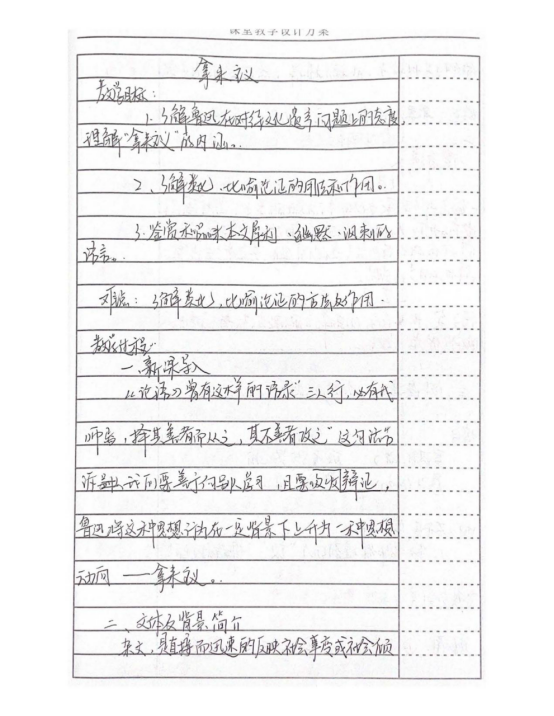 课堂教学设计方案
拿来主义
教学目标：
1、了解鲁迅在对待文化遗产问题上的态度，
理解“拿来主义”的内涵。
2、了解类比、比喻论证的用法和作用。
3、鉴赏和品味本文犀利、幽默、讽刺的
语言。
难点：了解类比、比喻论证的方法及作用.
教学过程：
一、新课导入
《论语》曾有这样的语录“三人行，必有我
师焉，择其善者而从之，其不善者改之”这句话告
诉我们要善于向别人学习，且要 辩证，
鲁迅将这种思想 在一定背景下上升为一种思想
动向——拿来主义。
二、文体及背景简介
杂文，是直接而迅速的反映社会事变或社会倾